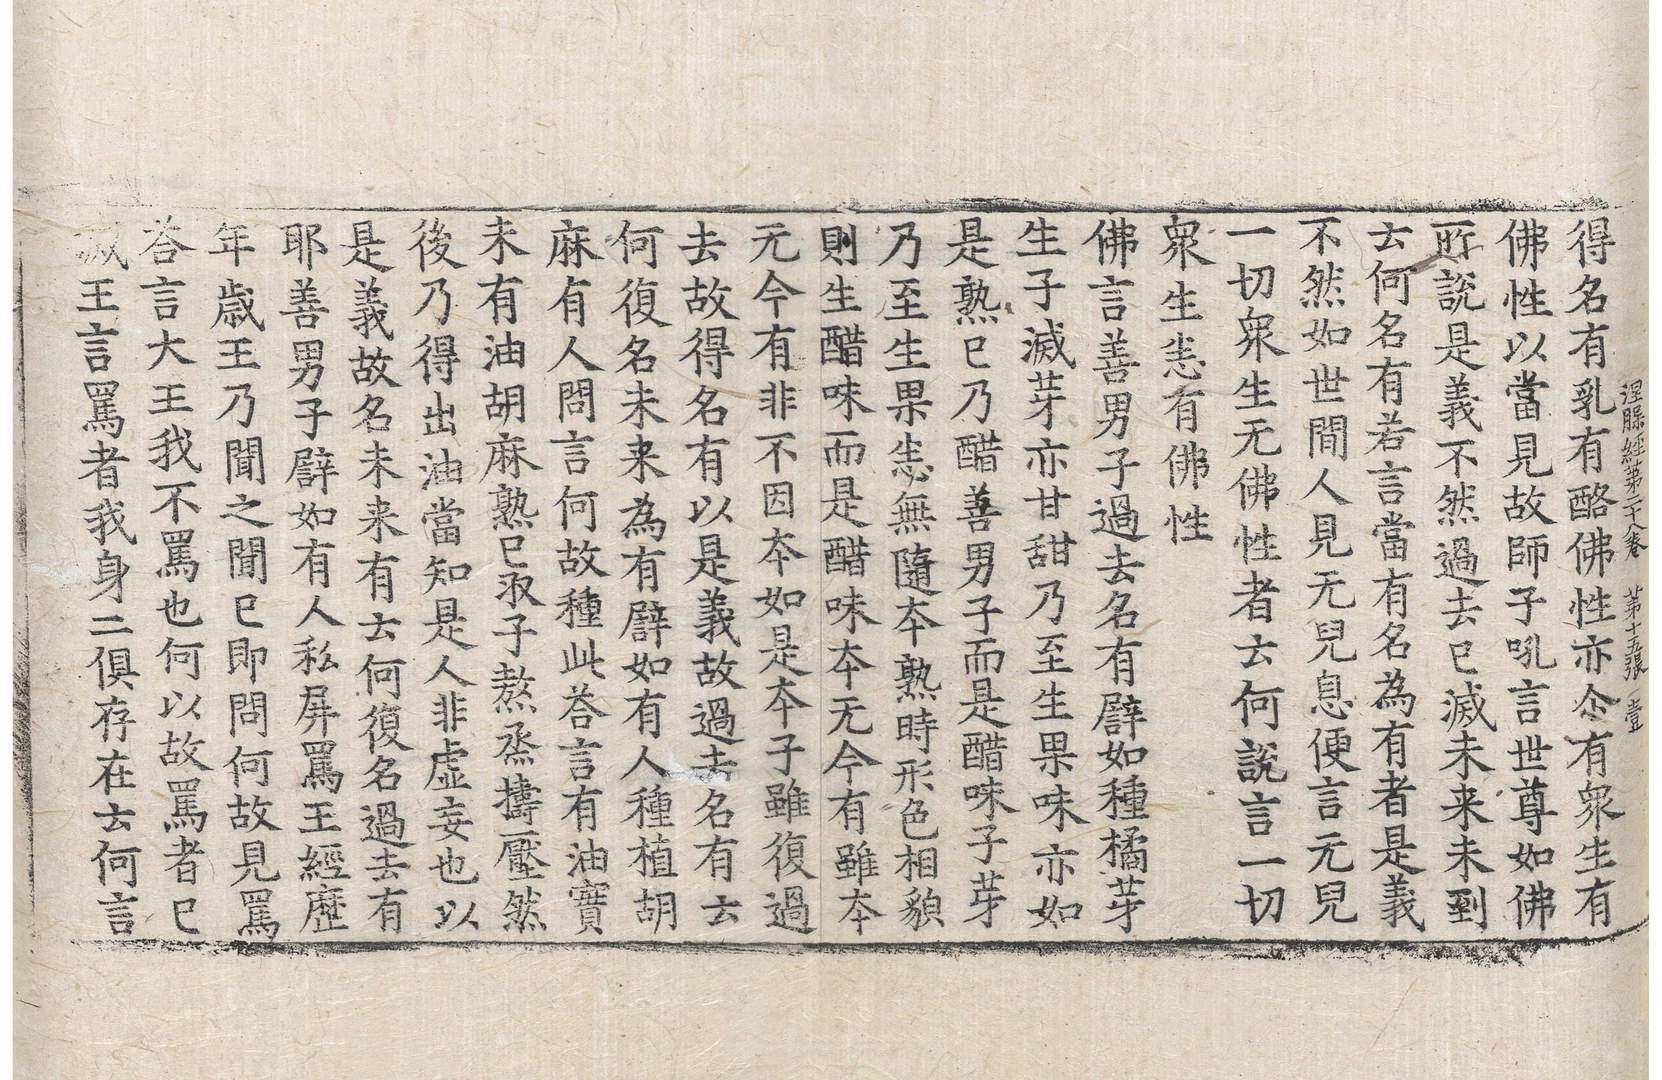 涅槃經第二十八卷 第十五張 壹
得名有乳有酪佛性亦尒有衆生有
佛性以當見故師子吼言世尊如佛
所說是義不然過去已滅未来未到
云何名有若言當有名為有者是義
不然如世間人見无兒息便言无兒
一切衆生无佛性者云何說言一切
衆生悉有佛性
佛言善男子過去名有譬如種橘芽
生子滅芽亦甘甜乃至生果味亦如
是熟已乃醋善男子而是醋味子芽
乃至生果悉無隨夲熟時形色相貌
則生醋味而是醋味夲无今有雖夲
无今有非不因夲如是夲子雖復過
去故得名有以是義故過去名有云
何復名未来為有譬如有人種植胡
麻有人問言何故種此荅言有油實
未有油胡麻熟已収子熬烝擣壓然
後乃得出油當知是人非虛妄也以
是義故名未来有云何復名過去有
耶善男子譬如有人私屏罵王經歷
年歲王乃聞之聞已即問何故見罵
荅言大王我不罵也何以故罵者已
滅王言罵者我身二俱存在云何言